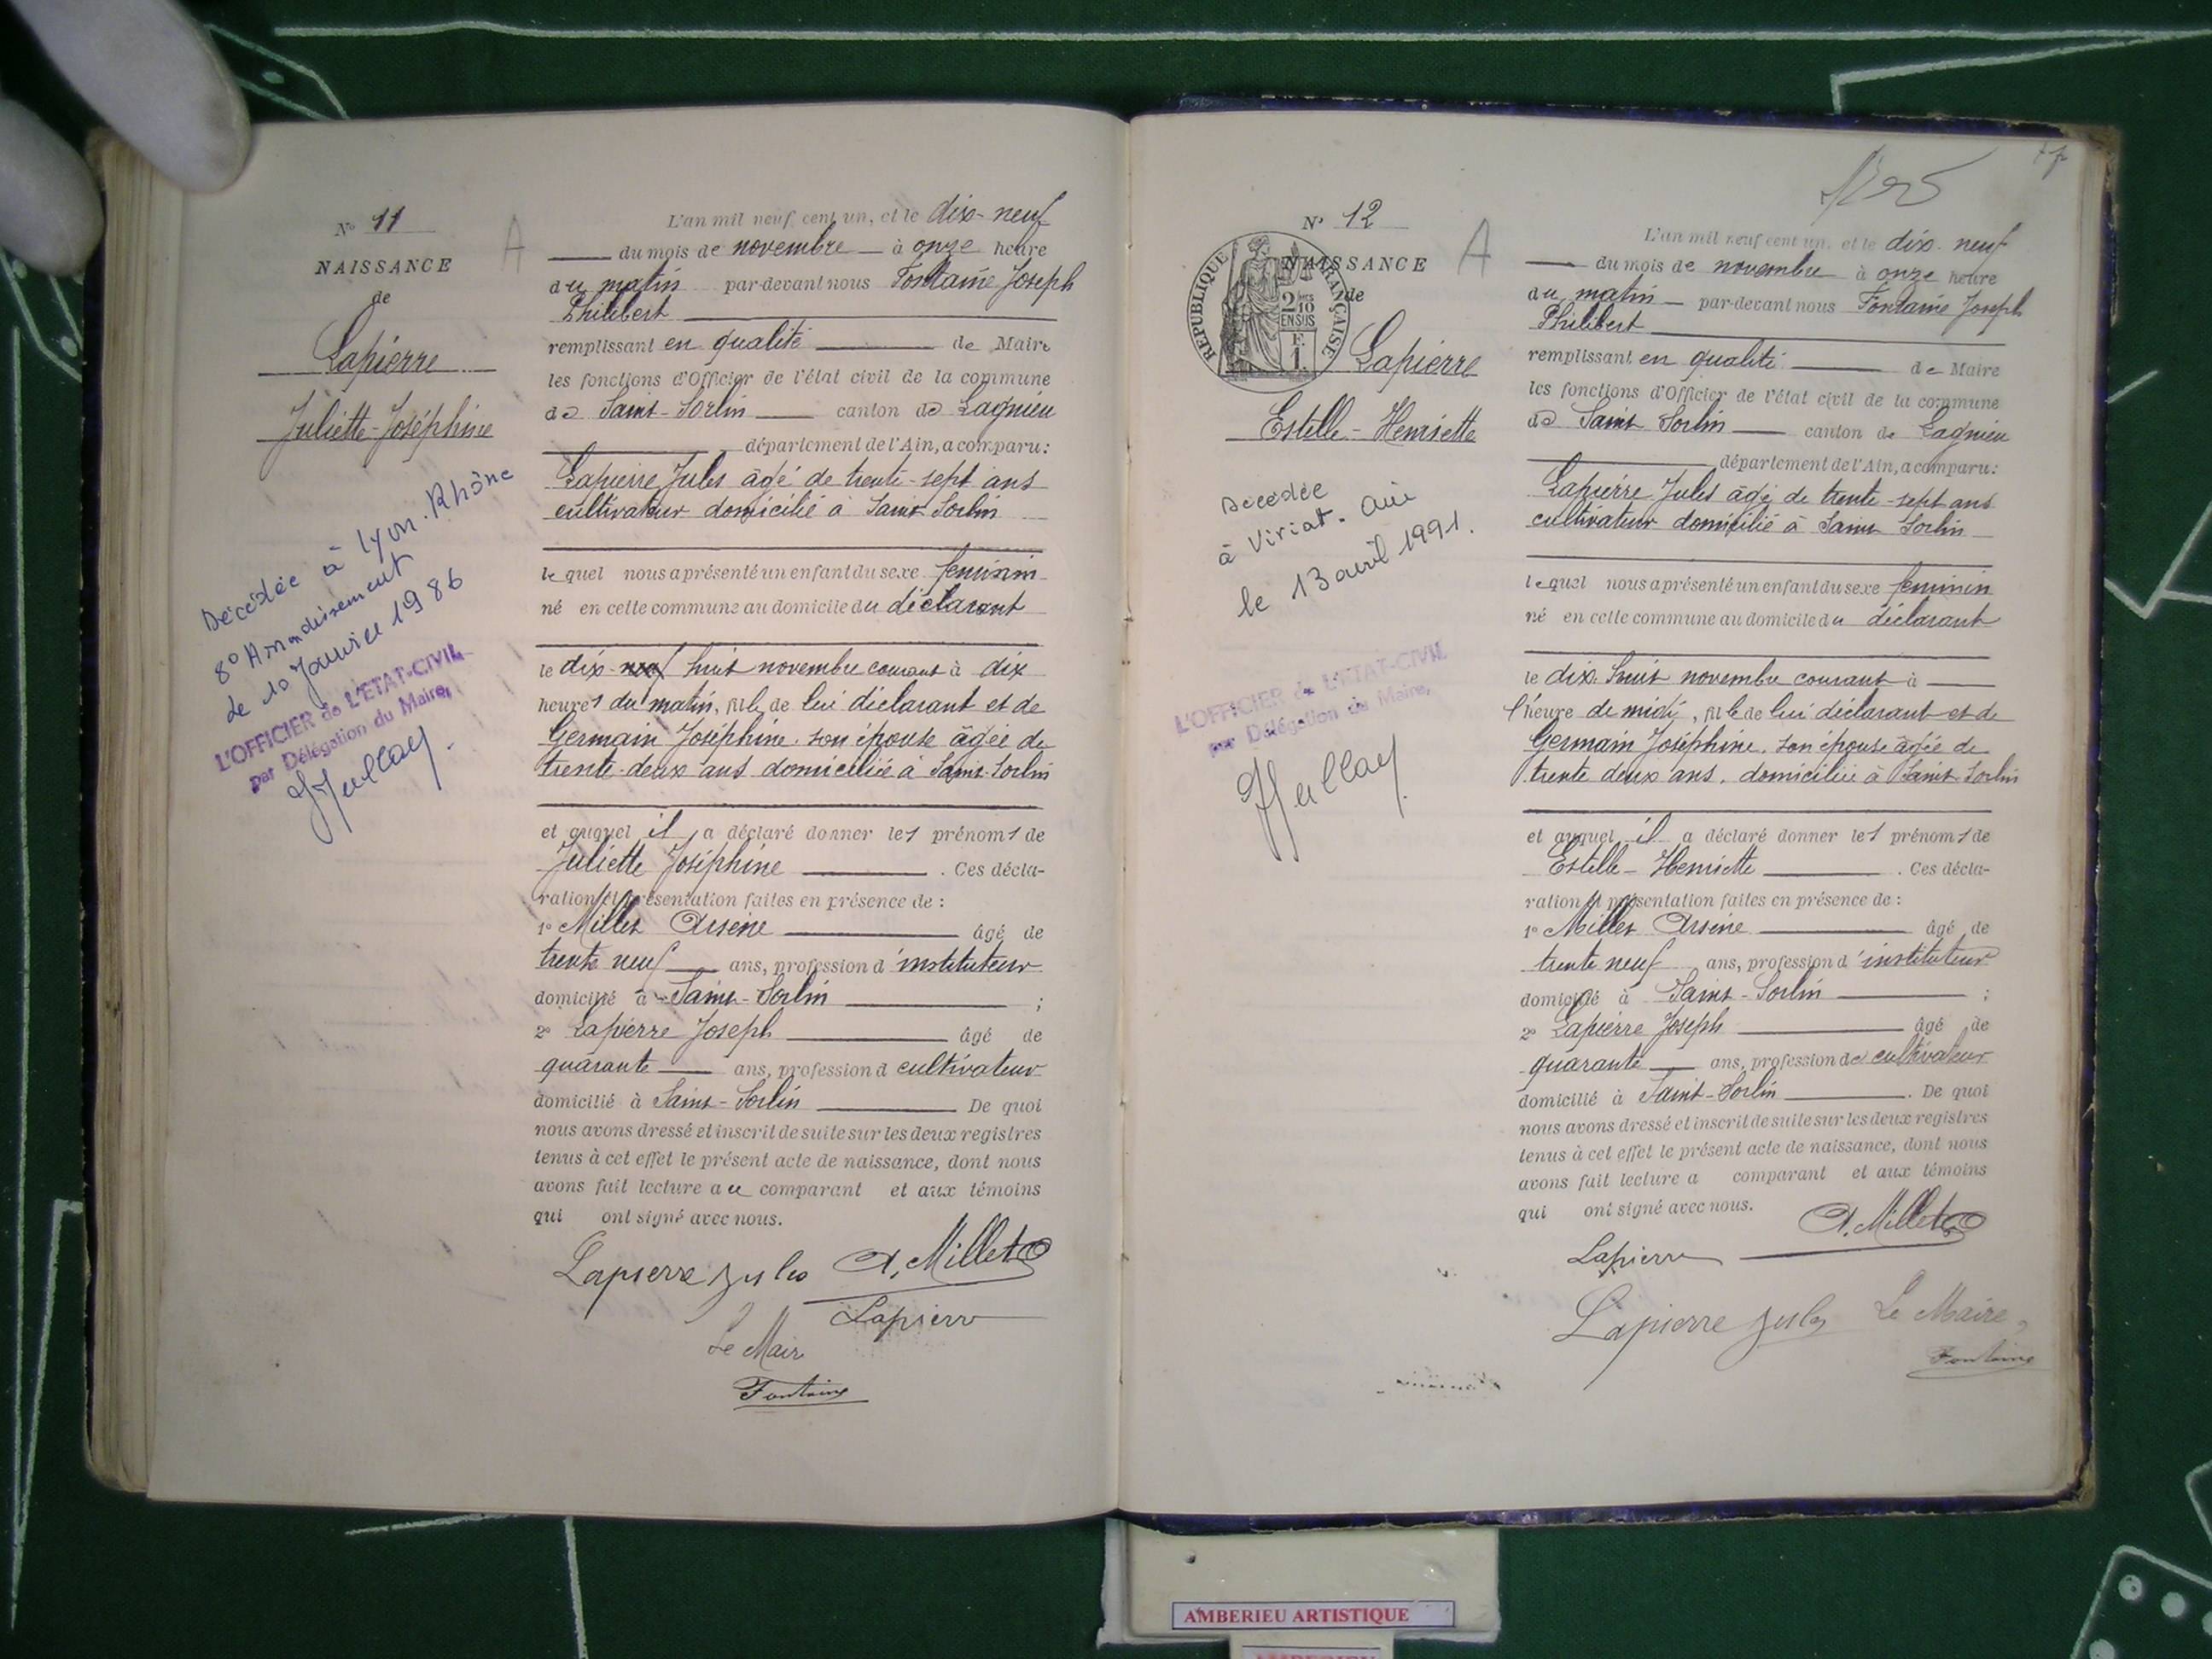 N° 11
NAISSANCE
de
Lapierre
Juliette-Joséphine
Décédée à Lyon. Rhône
8° Arrondissement
Le 10 Janvier 1986
L'OFFICIER de L'ETAT-CIVIL
par Délégation du Maire,
A
L'an mil neuf cent un, et le dix-neuf
du mois de novembre à onze heure
du matin par-devant nous Fontaine Joseph
Philibert
remplissant en qualité de Maire
les fonctions d'Officier de l'état civil de la commune
de Saint-Sorlin canton de Lagnieu
département de l'Ain, a comparu:
Lapierre Jules âgé de trente-sept ans
cultivateur domicilié à Saint Sorlin
lequel nous a présenté un enfant du sexe feminin
né en cette commune au domicile du déclarant
le dix-neuf huit novembre courant à dix
heures du matin, fille de lui déclarant et de
Germain Joséphine. son épouse âgée de
trente-deux ans domiciliée à Saint-Sorlin
et auquel il a déclaré donner les prénoms de
Juliette Joséphine . Ces décla-
ration et présentation faites en présence de :
1° Millet Arsène âgé de
trente neuf ans, profession d'instituteur
domicilié à Saint-Sorlin ;
2° Lapierre Joseph âgé de
quarante ans, profession d cultivateur
domicilié à Saint-Sorlin De quoi
nous avons dressé et inscrit de suite sur les deux registres
tenus à cet effet le présent acte de naissance, dont nous
avons fait lecture au comparant et aux témoins
qui ont signé avec nous.
Lapierre Jules A. Millet
Lapierre
Le Maire
Fontaine
N° 12
NAISSANCE
de
REPUBLIQUE FRANÇAISE
2/10
EN SUS
F.
1.
Lapierre
Estelle-Henriette
Décédée
à Viriat. Ain
le 13 avril 1991.
L'OFFICIER de L'ETAT-CIVIL
par Délégation du Maire,
A
L'an mil neuf cent un, et le dix-neuf
du mois de novembre à onze heure
du matin par-devant nous Fontaine Joseph
Philibert
remplissant en qualité de Maire
les fonctions d'Officier de l'état civil de la commune
de Saint Sorlin canton de Lagnieu
département de l'Ain, a comparu:
Lapierre Jules âgé de trente-sept ans
cultivateur domicilié à Saint Sorlin
lequel nous a présenté un enfant du sexe feminin
né en cette commune au domicile du déclarant
le dix-huit novembre courant à
l'heure de midi, fille de lui déclarant et de
Germain Joséphine. son épouse âgée de
trente deux ans. domiciliée à Saint-Sorlin
et auquel il a déclaré donner les prénoms de
Estelle-Henriette . Ces décla-
ration et présentation faites en présence de :
1° Millet Arsène âgé de
trente neuf ans, profession d'instituteur
domicilié à Saint-Sorlin ;
2° Lapierre Joseph âgé de
quarante ans, profession de cultivateur
domicilié à Saint-Sorlin . De quoi
nous avons dressé et inscrit de suite sur les deux registres
tenus à cet effet le présent acte de naissance, dont nous
avons fait lecture a comparant et aux témoins
qui ont signé avec nous.
A. Millet
Lapierre
Lapierre Jules Le Maire,
Fontaine
AMBERIEU ARTISTIQUE